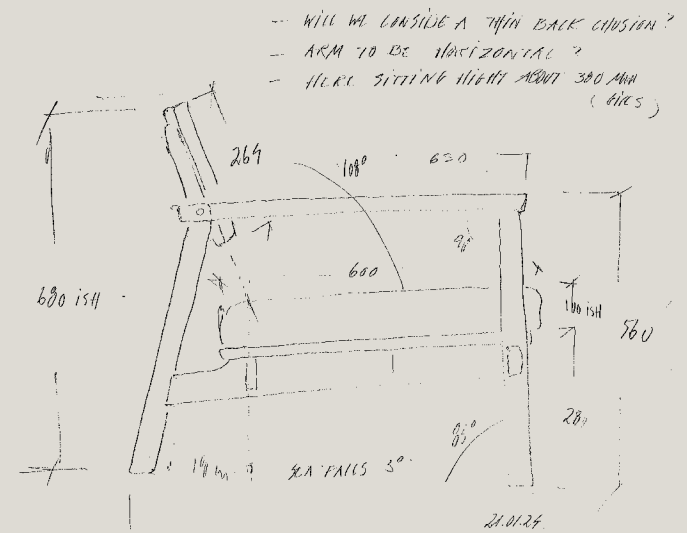 - WILL WE CONSIDE A THIN BACK CHUSION?
- ARM TO BE HORIZONTAL?
- HERE SITTING HIGHT ABOUT 380 MM
264
108°
620
600
680 ISH
100 ISH
560
SEA FALLS 3°
21.01.24